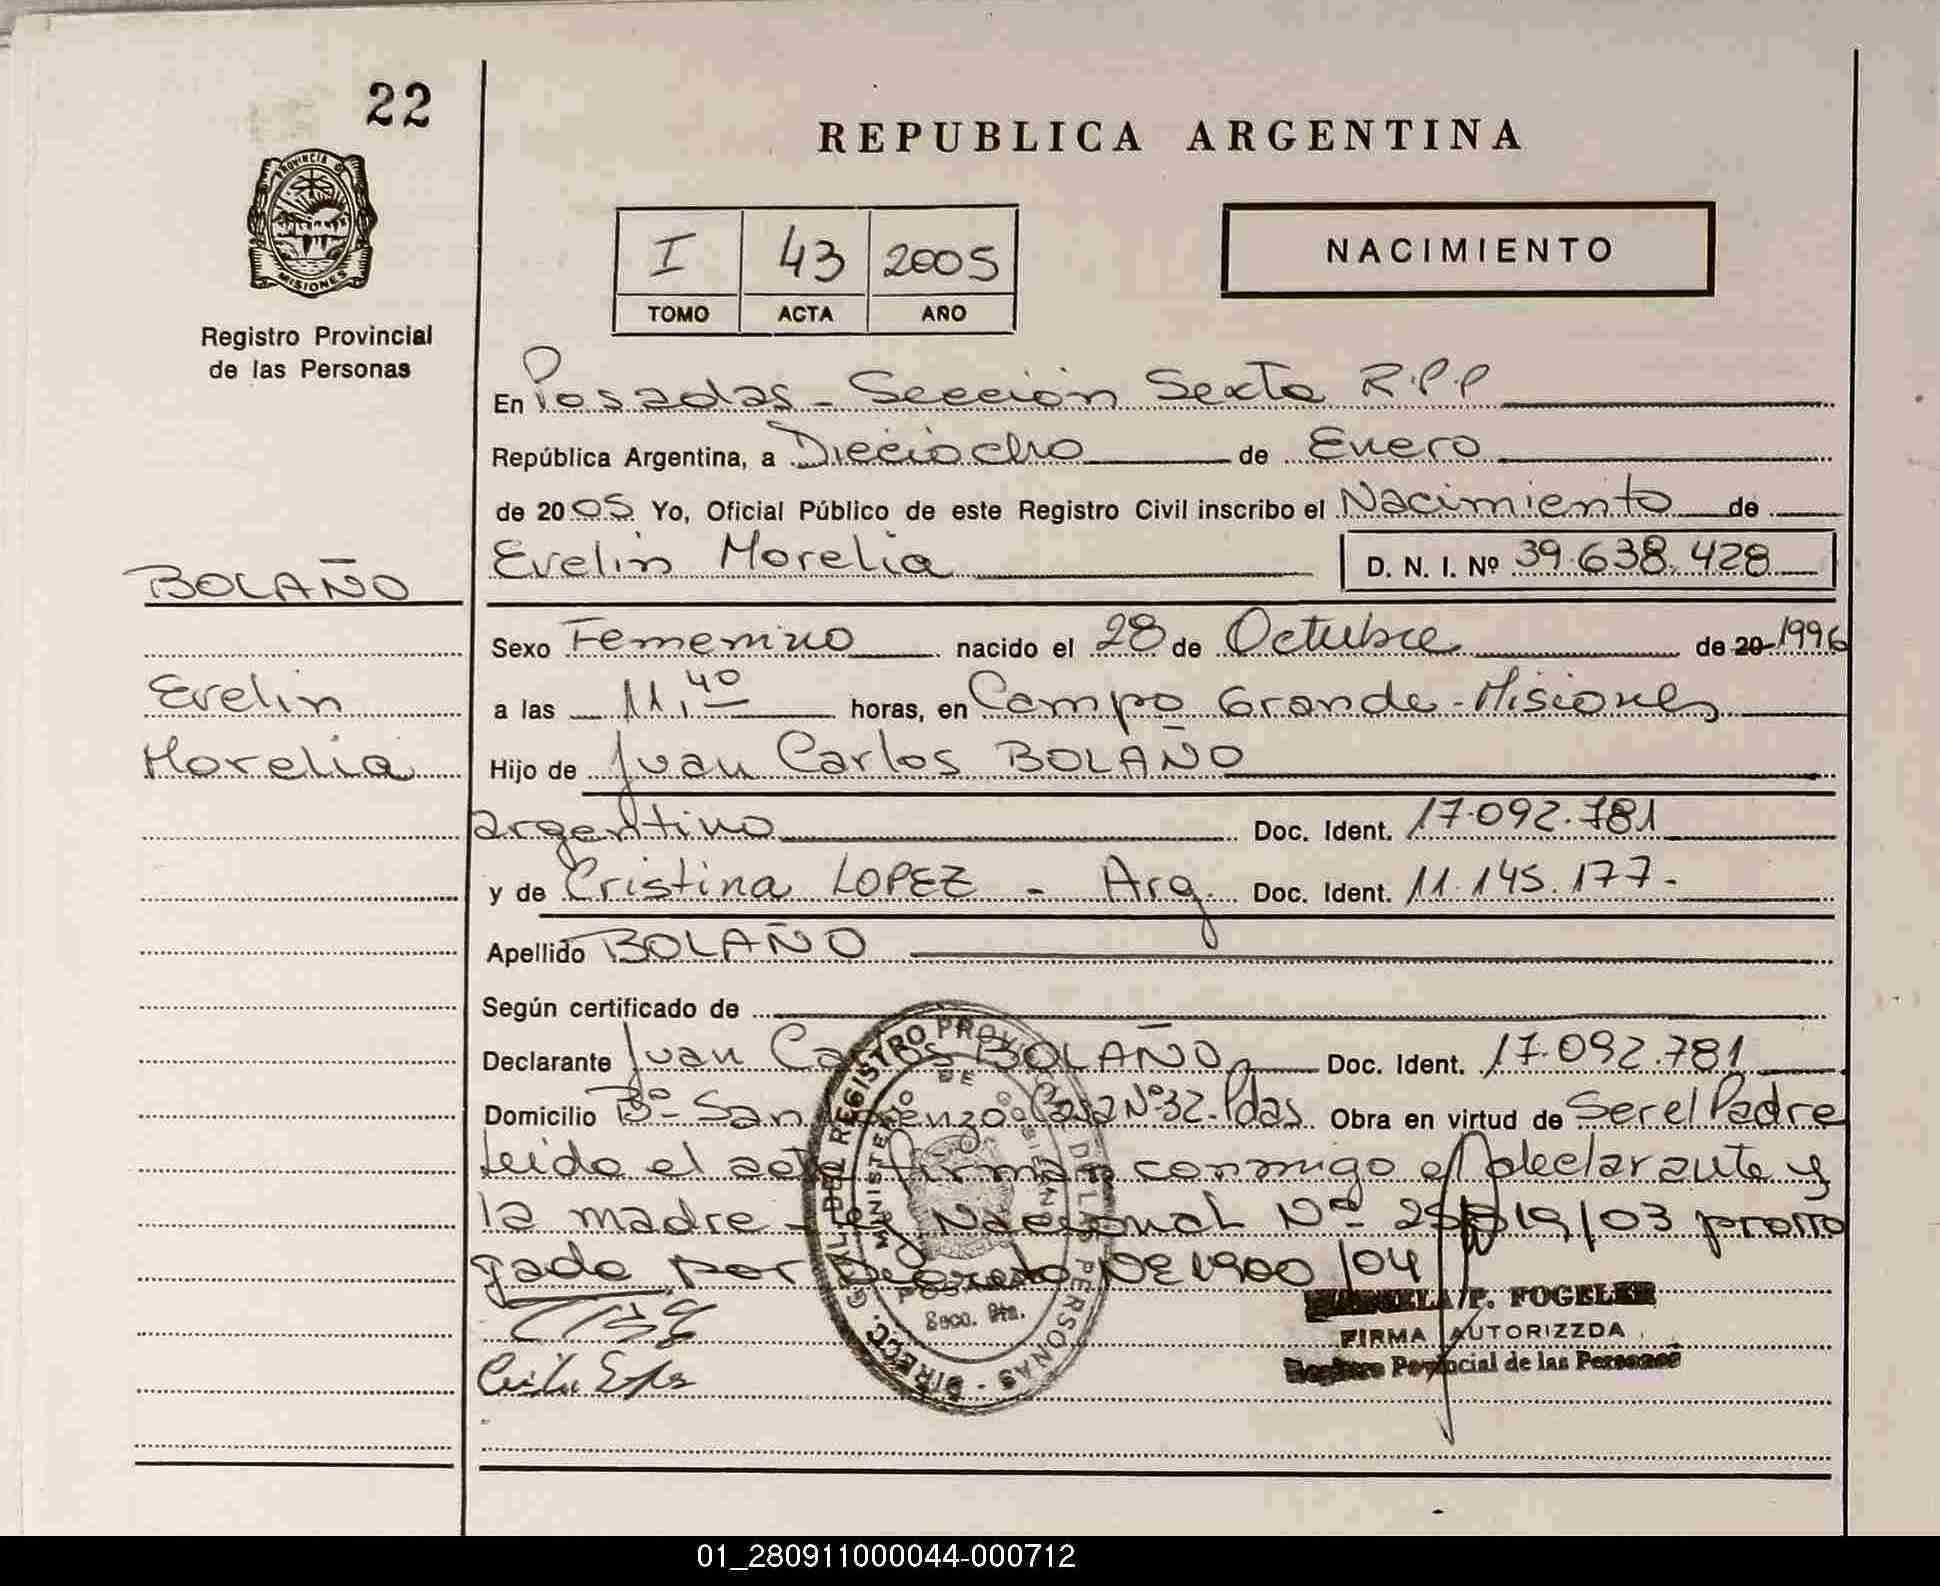 22
REPUBLICA ARGENTINA
PROVINCIA DE
MISIONES
Registro Provincial
de las Personas
I 43 2005
TOMO ACTA AÑO
NACIMIENTO
En Posadas - Sección Sexta R.P.P
República Argentina, a Dieciocho de Enero
de 2005 Yo, Oficial Público de este Registro Civil inscribo el Nacimiento de
Evelin Morelia D. N. I. Nº 39.638.428
BOLAÑO
Sexo Femenino nacido el 28 de Octubre de 20 1996
Evelin
a las 11,40 horas, en Campo Grande - Misiones
Morelia
Hijo de Juan Carlos BOLAÑO
argentino Doc. Ident. 17.092.781
y de Cristina LOPEZ - Arg. Doc. Ident. 11.145.177-
Apellido BOLAÑO
Según certificado de
Declarante Juan Carlos BOLAÑO Doc. Ident. 17.092.781
Domicilio Bº San Lorenzo Casa Nº 32 - Pdas Obra en virtud de Ser el Padre
Leido el acta firman conmigo el declarante y
la madre - Ley Nacional Nº 25819/03 prorro
gada por Decreto Nº 1900/04
DIRECC. GRAL. DEL REGISTRO PROVINCIAL DE LAS PERSONAS
MINISTERIO DE GOBIERNO
POSADAS
Secc. 6ta.
P. FOGELER
FIRMA AUTORIZZDA
Registro Provincial de las Personas
01_280911000044-000712